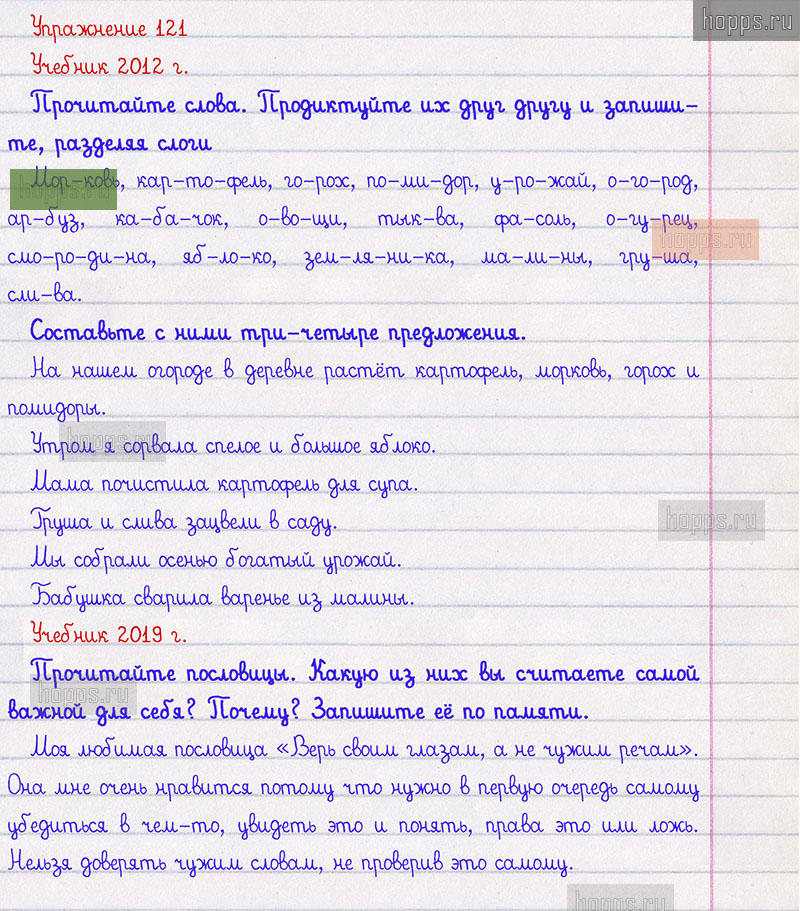 hopps.ru
Упражнение 121
Учебник 2012 г.
Прочитайте слова. Продиктуйте их друг другу и запиши-
те, разделяя слоги
Мор-ковь, кар-то-фель, го-рох, по-ми-дор, у-ро-жай, о-го-род,
hopps.ru
ар-буз, ка-ба-чок, о-во-щи, тык-ва, фа-соль, о-гу-рец,
hopps.ru
смо-ро-ди-на, яб-ло-ко, зем-ля-ни-ка, ма-ли-ны, гру-ша,
сли-ва.
Составьте с ними три-четыре предложения.
На нашем огороде в деревне растёт картофель, морковь, горох и
помидоры.
hopps.ru
Утром я сорвала спелое и большое яблоко.
Мама почистила картофель для супа.
hopps.ru
Груша и слива зацвели в саду.
Мы собрали осенью богатый урожай.
Бабушка сварила варенье из малины.
Учебник 2019 г.
Прочитайте пословицы. Какую из них вы считаете самой
hopps.ru
важной для себя? Почему? Запишите её по памяти.
Моя любимая пословица «Верь своим глазам, а не чужим речам».
Она мне очень нравится потому что нужно в первую очередь самому
убедиться в чем-то, увидеть это и понять, права это или ложь.
Нельзя доверять чужим словам, не проверив это самому.
hopps.ru